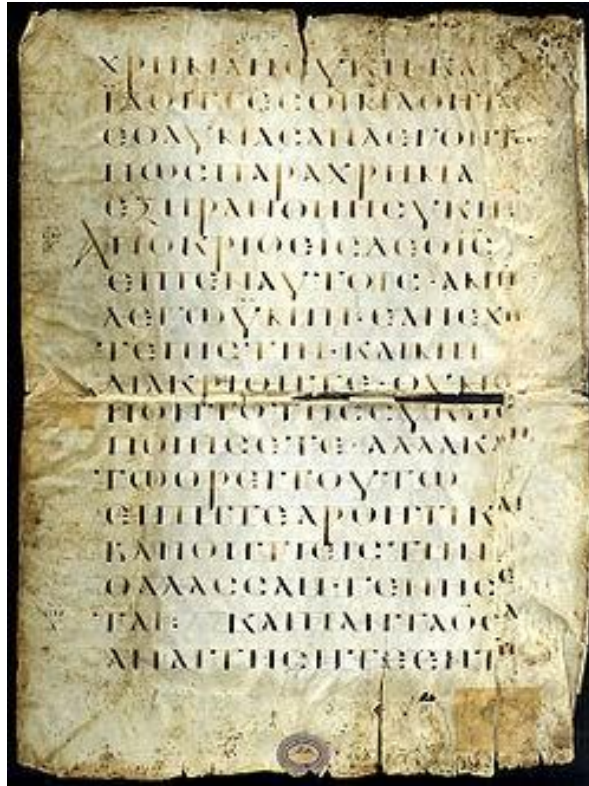 ΧΡΗΜΑΗϹΥΚΗΚΑΙ
ΪΔΟΝΤΕϹΟΙΜΑΘΗΤΑΙ
ΕΘΑΥΜΑϹΑΝΛΕΓΟΝΤΕϹ
ΠΩϹΠΑΡΑΧΡΗΜΑ
ΕΞΗΡΑΝΘΗΗϹΥΚΗ
ΑΠΟΚΡΙΘΕΙϹΔΕΟΙϹ
ΕΙΠΕΝΑΥΤΟΙϹ·ΑΜΗ
ΛΕΓΩΫΜΙΝ·ΕΑΝΕΧΗ
ΤΕΠΙϹΤΙΝ·ΚΑΙΜΗ
ΔΙΑΚΡΙΘΗΤΕ·ΟΥΜΟ
ΝΟΝΤΟΤΗϹϹΥΚΗϹ
ΠΟΙΗϹΕΤΕ·ΑΛΛΑΚΑΝ
ΤΩΟΡΕΙΤΟΥΤΩ
ΕΙΠΗΤΕΑΡΘΗΤΙΚΑΙ
ΒΛΗΘΗΤΙΕΙϹΤΗΝ
ΘΑΛΑϹϹΑΝ·ΓΕΝΗϹΕ
ΤΑΙ: ΚΑΙΠΑΝΤΑΟϹΑ
ΑΝΑΙΤΗϹΗΤΕΕΝΤΗ